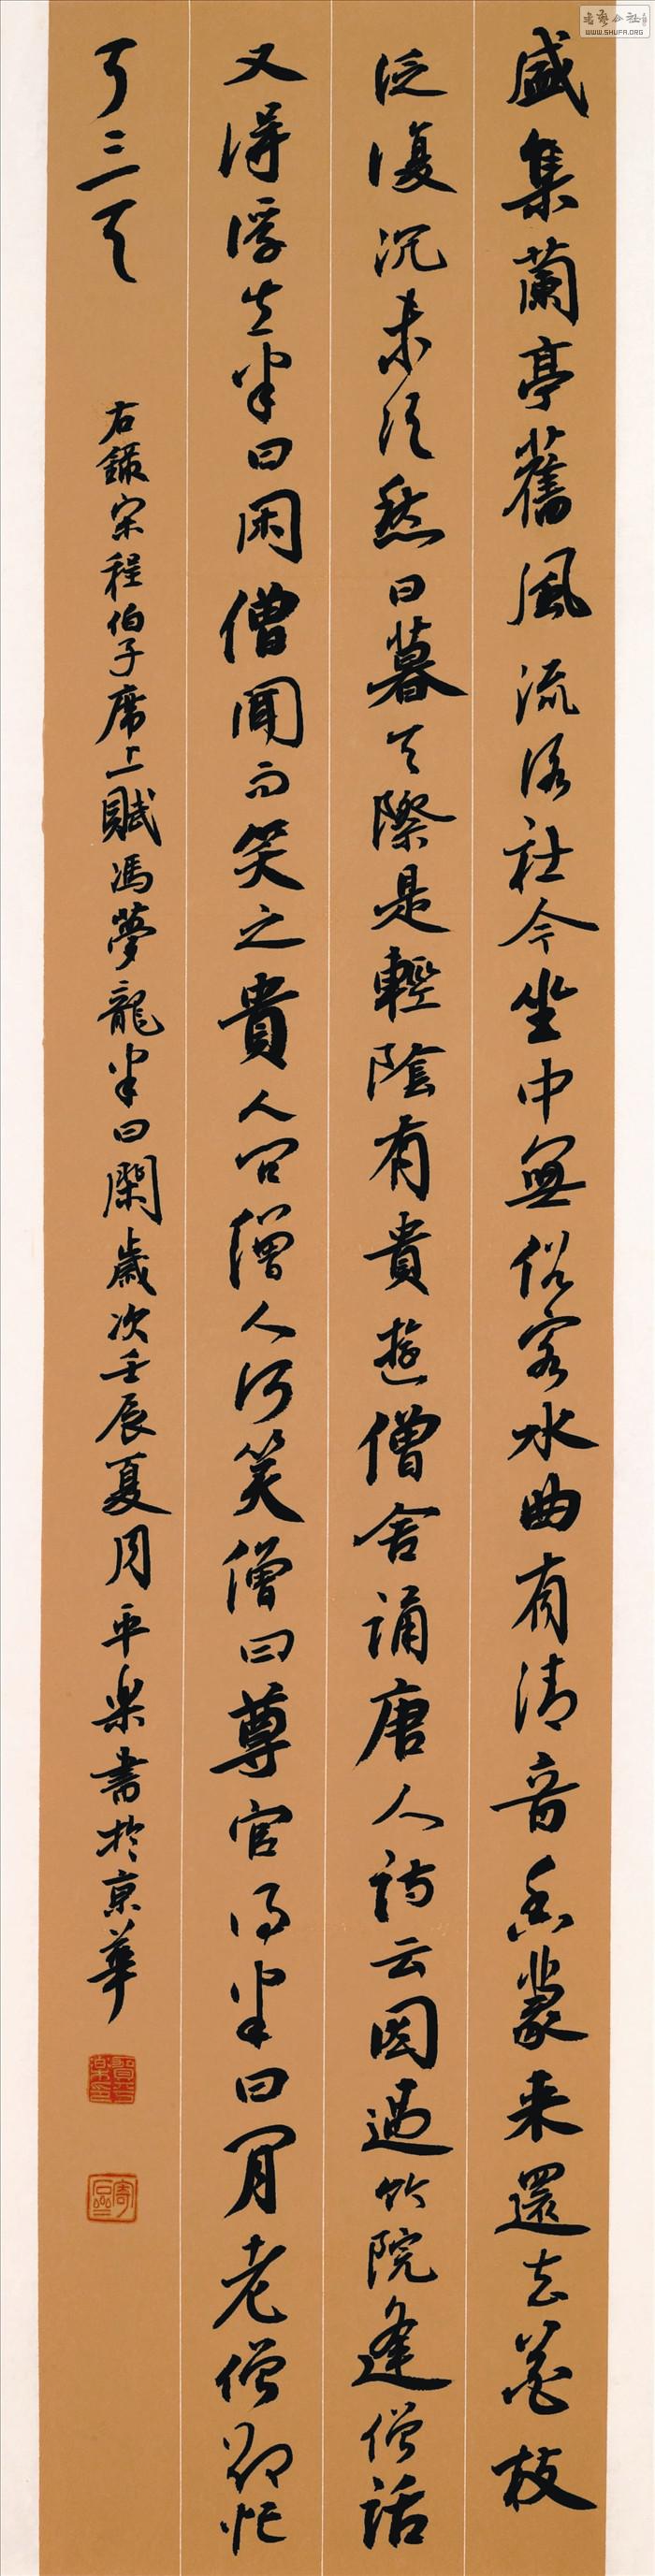 盛集蘭亭舊風流洛社今坐中無俗客水曲有清音香篆来還去花枝
泛復沉未須愁日暮天際是輕陰有貴遊僧舍誦唐人詩云因過竹院逢僧話
又得浮生半日閑僧聞而笑之貴人問僧人何笑僧曰尊官得半日閒老僧卻忙
了三天
右錄宋程伯子席上賦馮夢龍半日閑歲次壬辰夏月平樂書於京華
WWW.SHUFA.ORG